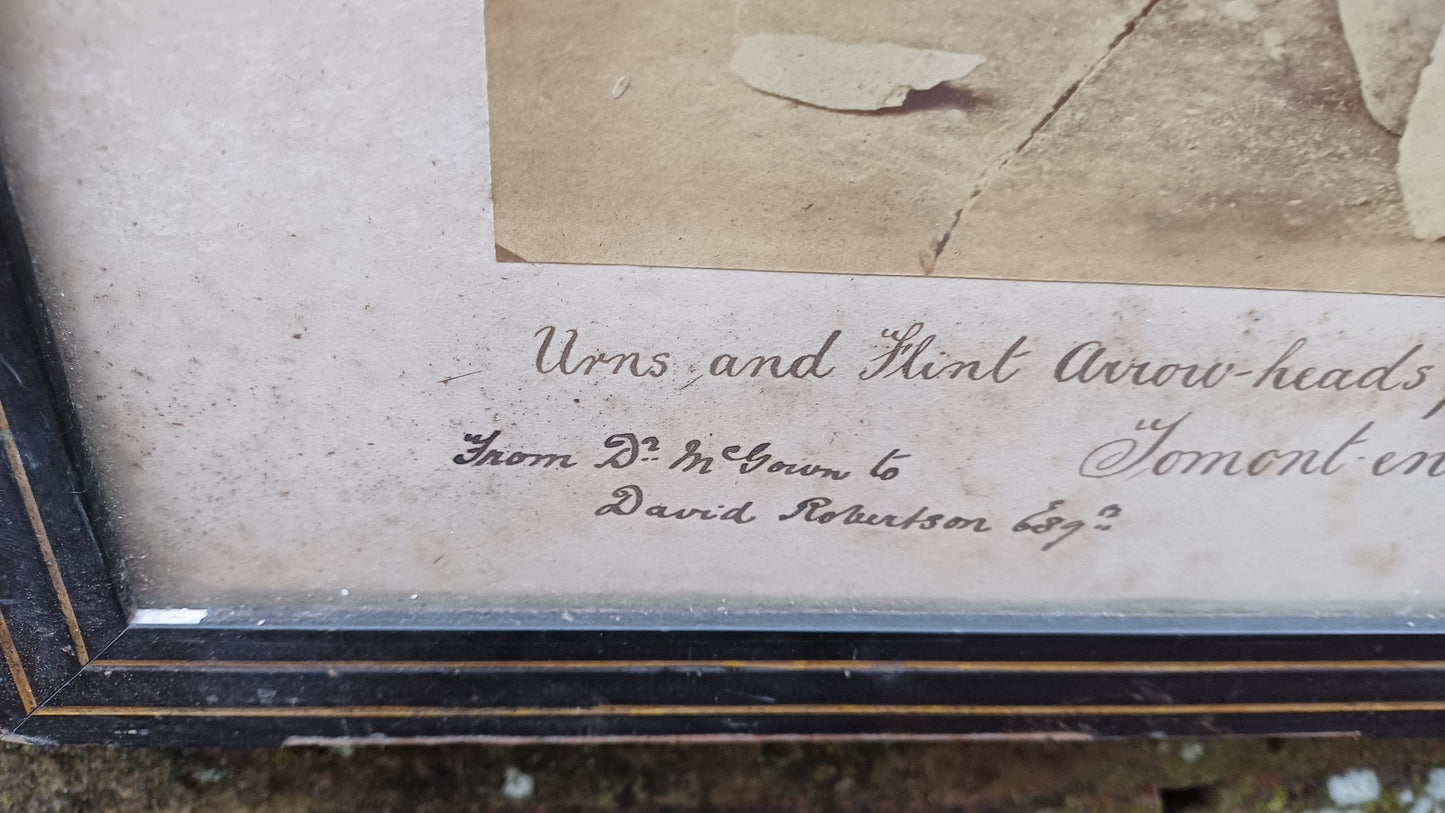 Urns and Flint Arrow-heads,
Tomont-en
From Dr. McGown to
David Robertson Esqr.